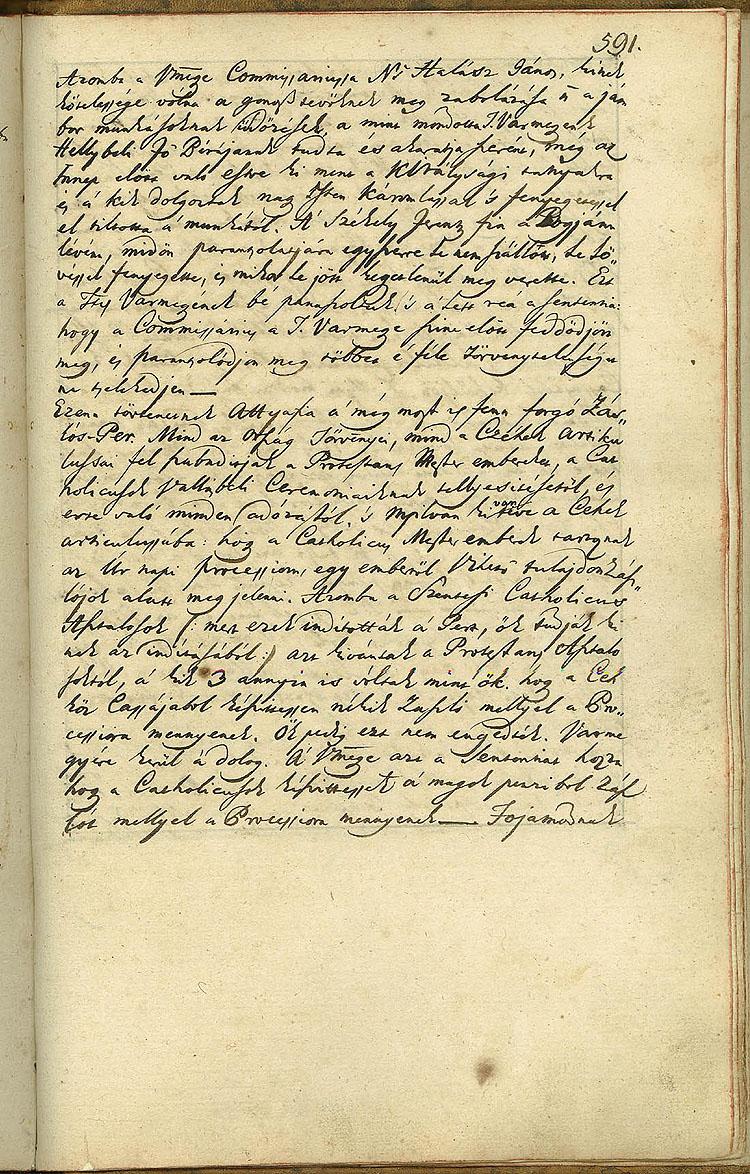 591.
Azomba a Vmege Commissariussa Ns Halász János, kinek
kötelessége volna a gonosz tevőknek meg zabolázása 's a jám
bor munkásoknak üldözések, a mint mondotta T. Vármegyénk
Hellybéli Fő Bírájának tudta és akarattya szerént, még az
Innep előtt való estve ki ment a Királysági tanyákra
és a kik dolgoztak nagy Isten káromlással 's fenyegetéssel
el tiltotta a munkától. A Székely Ferenz fia a
lévén, midőn parantsolatjára egyszerre le nem szállott, le lö„
véssel fenyegette, és mikor le jött kegyetlenül meg verette. Ezt
a Tts Vármegyének bé panaszoltuk 's a lett rea a sententia:
hogy a Commissárius a T. Vármegye színe előtt feddődjön
meg, és parantsolódjon meg többet é féle törvénytelenséget
ne tselekedjen —
Ezen történetnek Attyafia a még most is fenn forgó Zász„
lós-Per. Mind az Ország Törvényei, mind a Czéhek Artiku
lussai fel szabadítják a Protestans Mester embereket, a Cat
holicusok Vallásbéli Ceremoniáiknak tellyesítésétől, és
erre való minden adózástól, 's nyilván ki van téve a Céhek
articulussába: hogy a Catholicus Mester emberek tartoznak
az Úr napi processiora, egy emberűl Vitető tulajdon Zász„
lójok alatt meg jelenni. Azomba a Szentesi Catholicus
Asztalosok (: mert ezek indították a Pert, ők tudják ki
nek az indításából:) azt kívánták a Protestans Asztalo
soktól, a kik 3 annyin is vóltak mint ők. hogy a Céh
köz Cassájából készíttessen nékik Zászló mellyel a Pro„
cessiora mennyenek. Ők pedig ezt nem engedték. Várme
gyére került a dolog. A Vmege azt a Sententiát hozta
hogy a Catholicusok készíttessék a magok pénziből Zász
lót mellyel a Processiora mennyenek — Fojamodnak